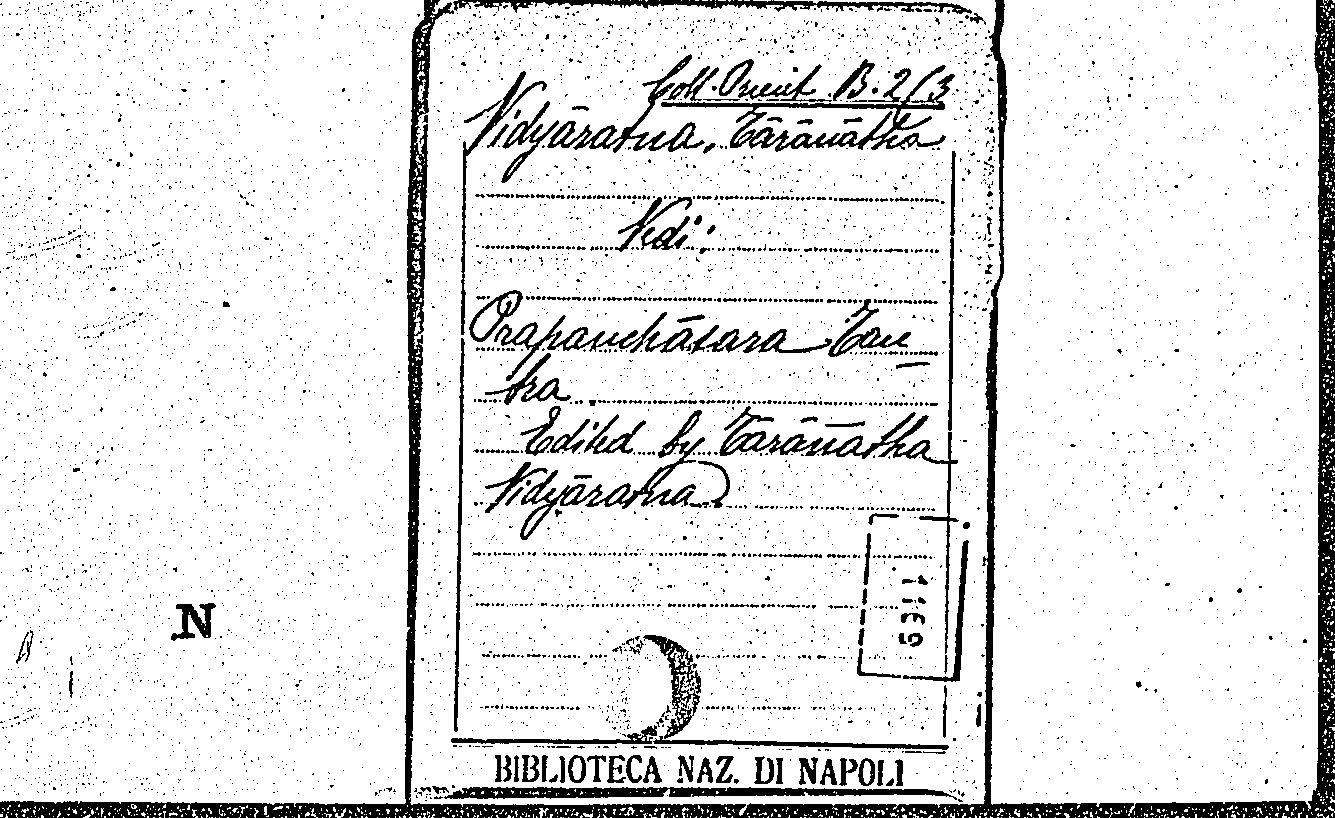 Coll. Orient B. 2/3
Vidyāratna, Tārānātha
Vedi:
Prapanchāsara Tan
tra.
Edited by Tārānātha
Vidyāratna
N
BIBLIOTECA NAZ. DI NAPOLI